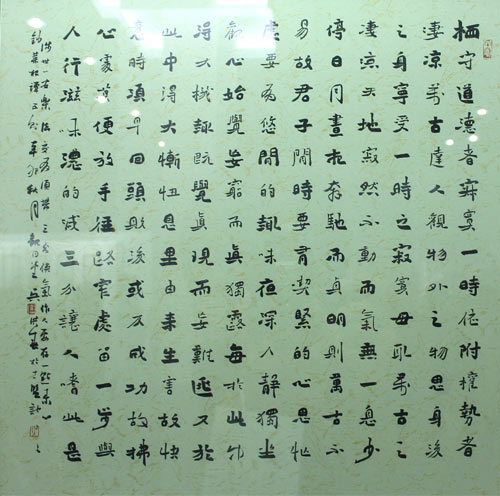 栖守道德者寂寞一時依附權勢者
淒涼萬古達人觀物外之物思身後
之身寧受一時之寂寞毋取萬古之
淒涼天地寂然不動而氣無一息少
停日月晝夜奔馳而貞明則萬古不
易故君子閒時要有喫緊的心思忙
處要為悠閒的趣味夜深人靜獨坐
觀心始覺妄窮而真獨露每於此中
得大機趣既覺真現而妄難逃又於
此中得大慚忸恩里由來生害故快
意時須早回頭敗後或反成功故拂
心處莫便放手徑路窄處留一步與
人行滋味濃的減三分讓人嗜此是
涉世一樂法交友須帶三分俠氣作人要存一點素心
錄菜根譚句於辛卯秋月